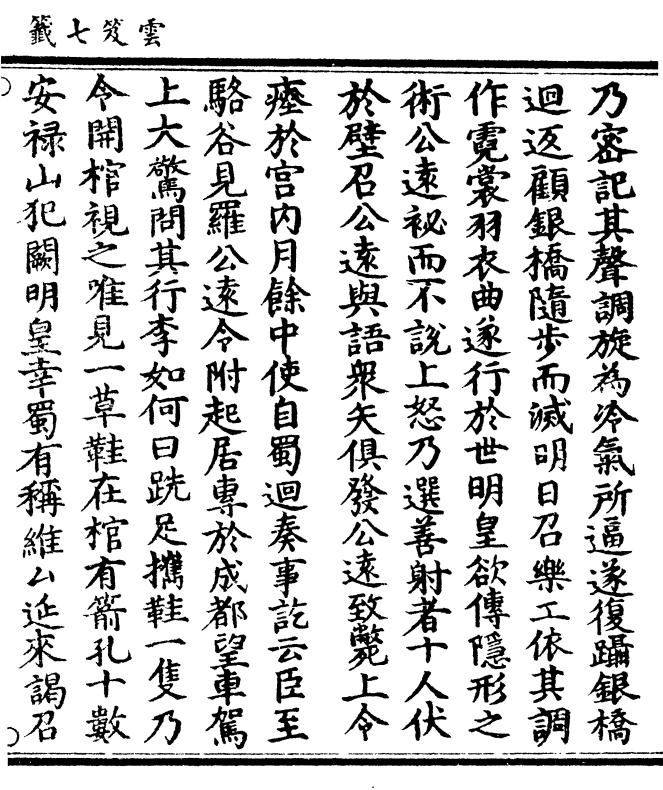 雲笈七籤
乃密記其聲調旋為冷氣所逼遂復躡銀橋
迴返顧銀橋隨步而滅明日召樂工依其調
作霓裳羽衣曲遂行於世明皇欲傳隱形之
術公遠祕而不說上怒乃選善射者十人伏
於壁召公遠與語衆矢俱發公遠致斃上令
瘞於宫内月餘中使自蜀迴奏事訖云臣至
駱谷見羅公遠令附起居專於成都望車駕
上大驚問其行李如何曰跣足攜鞋一隻乃
令開棺視之唯見一草鞋在棺有箭孔十數
安禄山犯闕明皇幸蜀有稱維厶延來謁召